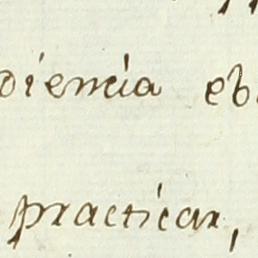 diencia eb
practicar,